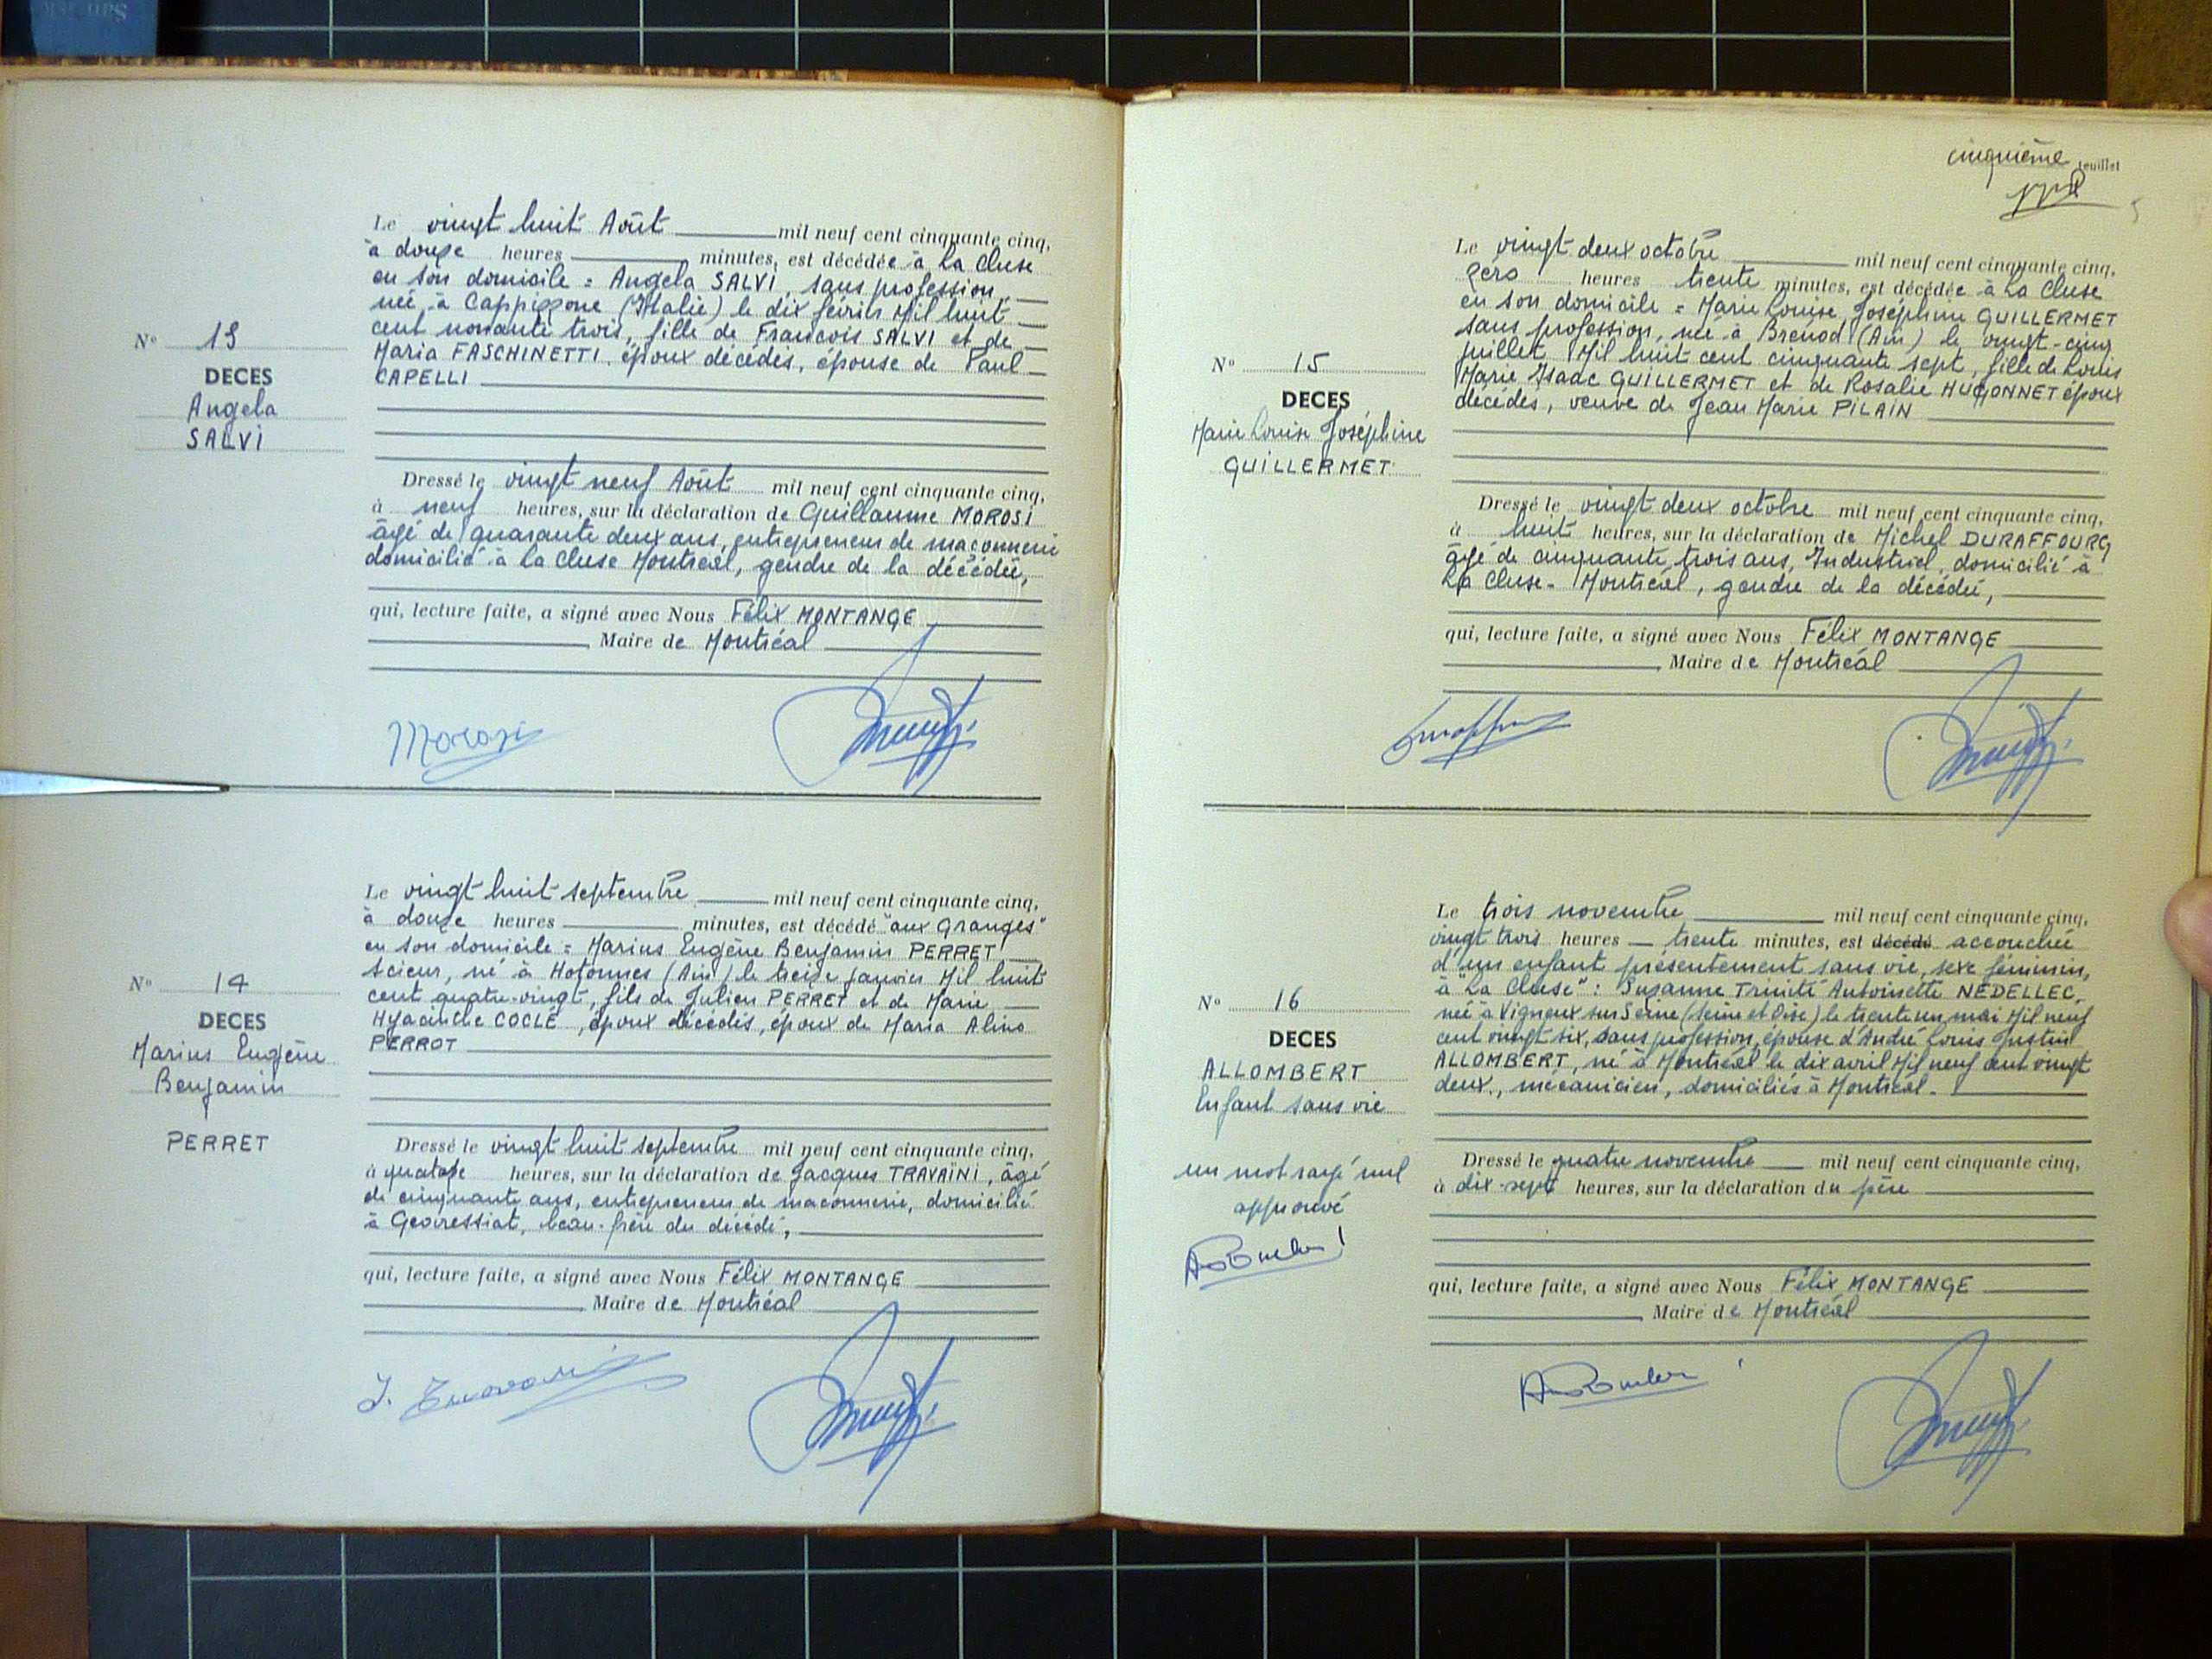 Le vingt huit Août mil neuf cent cinquante cinq,
à douze heures minutes, est décédée à La Cluse
en son domicile = Angela SALVI, sans profession,
née à Cappizzone (Italie) le dix février Mil huit
cent nonante trois, fille de Francois SALVI et de
Maria FASCHINETTI, époux décédés, épouse de Paul
CAPELLI
N° 13
DECES
Angela
SALVI
Dressé le vingt neuf Août mil neuf cent cinquante cinq,
à neuf heures, sur la déclaration de Guillaume MOROSI
âgé de quarante deux ans, entrepreneur de maçonnerie
domicilié à La Cluse Montréal, gendre de la décédée,
qui, lecture faite, a signé avec Nous Félix MONTANGE
Maire de Montréal
Morosi
Le vingt huit septembre mil neuf cent cinquante cinq,
à douze heures minutes, est décédé "aux Granges"
en son domicile = Marius Eugène Benjamin PERRET
scieur, né à Hotonnes (Ain) le treize janvier Mil huit
cent quatre-vingt, fils de Julien PERRET et de Marie
Hyacinthe COCLÉ, époux décédés, époux de Maria Alino
PERROT
N° 14
DECES
Marius Eugène
Benjamin
PERRET
Dressé le vingt huit septembre mil neuf cent cinquante cinq,
à quatorze heures, sur la déclaration de Jacques TRAVAÏNI, âgé
de cinquante ans, entrepreneur de maconnerie, domicilié
à Geovressiat, beau-frère du décédé,
qui, lecture faite, a signé avec Nous Félix MONTANGE
Maire de Montréal
cinquième feuillet
Le vingt deux octobre mil neuf cent cinquante cinq,
zéro heures trente minutes, est décédée à La Cluse
en son domicile = Marie Louise Joséphine GUILLERMET
sans profession, née à Brénod (Ain) le vingt-cinq
juillet Mil huit cent cinquante sept, fille de Louis
Marie Isaac GUILLERMET et de Rosalie HUGONNET époux
décédés, veuve de Jean Marie PILAIN
N° 15
DECES
Marie Louise Joséphine
GUILLERMET
Dressé le vingt deux octobre mil neuf cent cinquante cinq,
à huit heures, sur la déclaration de Michel DURAFFOURG
âgé de cinquante trois ans, Industriel, domicilié à
La Cluse-Montréal, gendre de la décédée,
qui, lecture faite, a signé avec Nous Félix MONTANGE
Maire de Montréal
Le trois novembre mil neuf cent cinquante cinq,
vingt trois heures trente minutes, est décédé accouchée
d'un enfant présentement sans vie, sexe féminin,
à "La Cluse" : Suzanne Trinité Antoinette NÉDELLEC,
née à Vigneux sur Seine (Seine et Oise) le trente un mai Mil neuf
cent vingt six, sans profession, épouse d'André Louis Justin
ALLOMBERT, né à Montréal le dix avril Mil neuf cent vingt
deux, mécanicien, domiciliés à Montréal.
N° 16
DECES
ALLOMBERT
Enfant sans vie
un mot rayé nul
approuvé
Dressé le quatre novembre mil neuf cent cinquante cinq,
à dix-sept heures, sur la déclaration du père
qui, lecture faite, a signé avec Nous Félix MONTANGE
Maire de Montréal